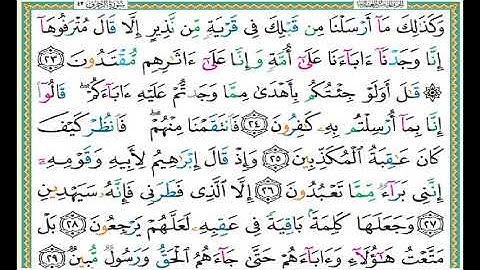 سُورَةُ الزُّخْرُفِ ٤٣
وَكَذَٰلِكَ مَآ أَرْسَلْنَا مِن قَبْلِكَ فِى قَرْيَةٍ مِّن نَّذِيرٍ إِلَّا قَالَ مُتْرَفُوهَآ
إِنَّا وَجَدْنَآ ءَابَآءَنَا عَلَىٰٓ أُمَّةٍ وَإِنَّا عَلَىٰٓ ءَاثَٰرِهِم مُّقْتَدُونَ ٢٣
۞ قَٰلَ أَوَلَوْ جِئْتُكُم بِأَهْدَىٰ مِمَّا وَجَدتُّمْ عَلَيْهِ ءَابَآءَكُمْ ۖ قَالُوٓا۟
إِنَّا بِمَآ أُرْسِلْتُم بِهِۦ كَٰفِرُونَ ٢٤ فَٱنتَقَمْنَا مِنْهُمْ ۖ فَٱنظُرْ كَيْفَ
كَانَ عَٰقِبَةُ ٱلْمُكَذِّبِينَ ٢٥ وَإِذْ قَالَ إِبْرَٰهِيمُ لِأَبِيهِ وَقَوْمِهِۦٓ
إِنَّنِى بَرَآءٌ مِّمَّا تَعْبُدُونَ ٢٦ إِلَّا ٱلَّذِى فَطَرَنِى فَإِنَّهُۥ سَيَهْدِينِ
٢٧ وَجَعَلَهَا كَلِمَةًۢ بَاقِيَةً فِى عَقِبِهِۦ لَعَلَّهُمْ يَرْجِعُونَ ٢٨ بَلْ
مَتَّعْتُ هَٰٓؤُلَآءِ وَءَابَآءَهُمْ حَتَّىٰ جَآءَهُمُ ٱلْحَقُّ وَرَسُولٌ مُّبِينٌ ٢٩